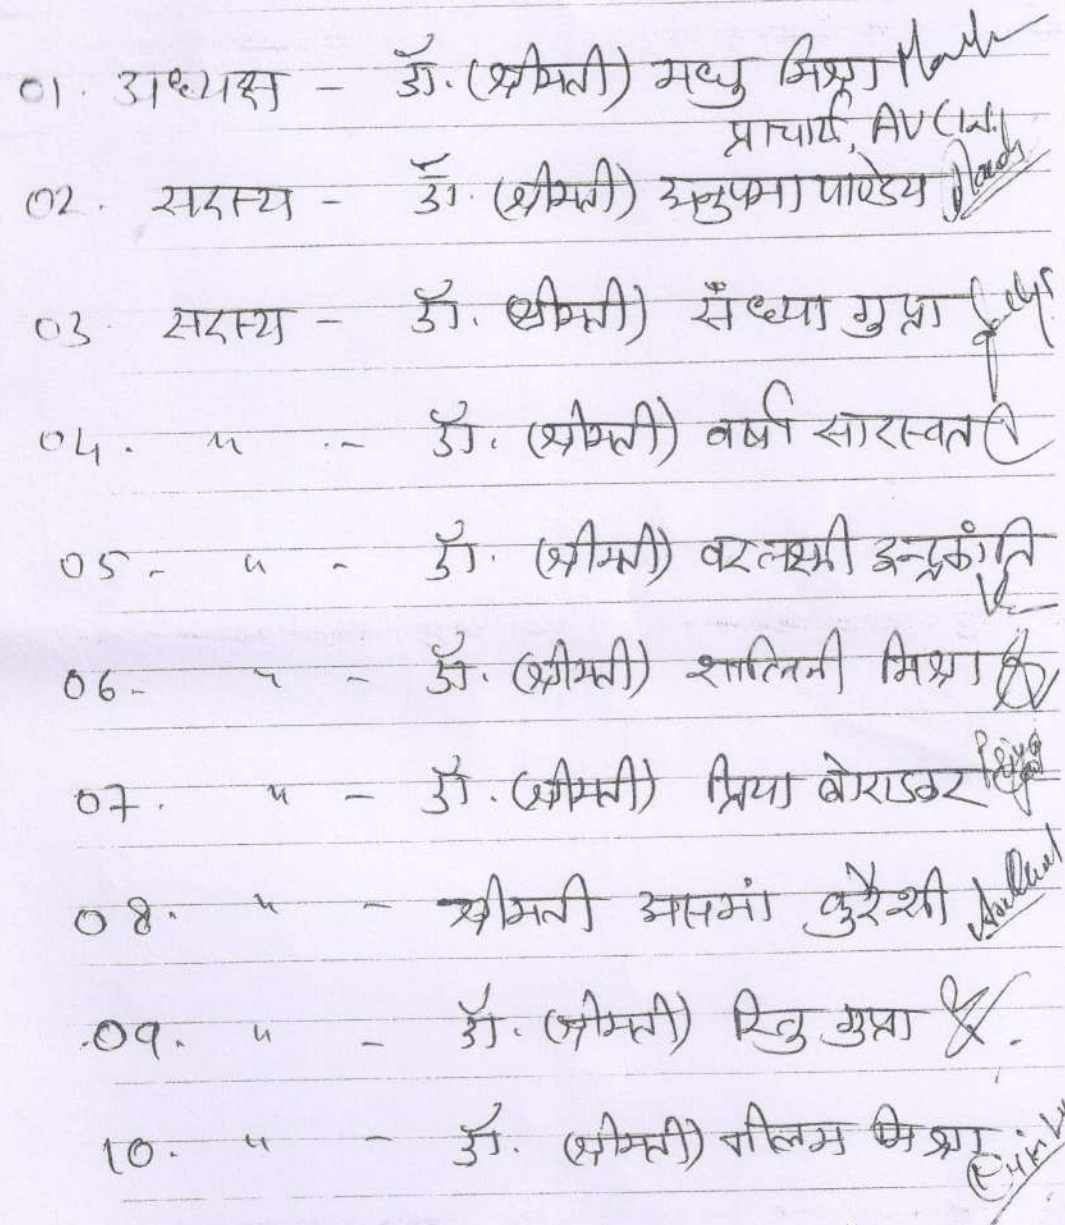 01. अध्यक्ष - डॉ. (श्रीमती) मधु मिश्रा
प्राचार्य, AVC
02. सदस्य - डॉ. (श्रीमती) अनुपमा पाण्डेय
03. सदस्य - डॉ. (श्रीमती) संध्या गुप्ता
04. " - डॉ. (श्रीमती) वर्षा सारस्वत
05 - " - डॉ. (श्रीमती) वरलक्ष्मी इन्द्रकांति
06 - " - डॉ. (श्रीमती) शालिनी मिश्रा
07. " - डॉ. (श्रीमती) प्रिया बोराडकर
08. " - श्रीमती असमां कुरैशी
09. " - डॉ. (श्रीमती) रितु गुप्ता
10. " - डॉ. (श्रीमती) नीलम मिश्रा